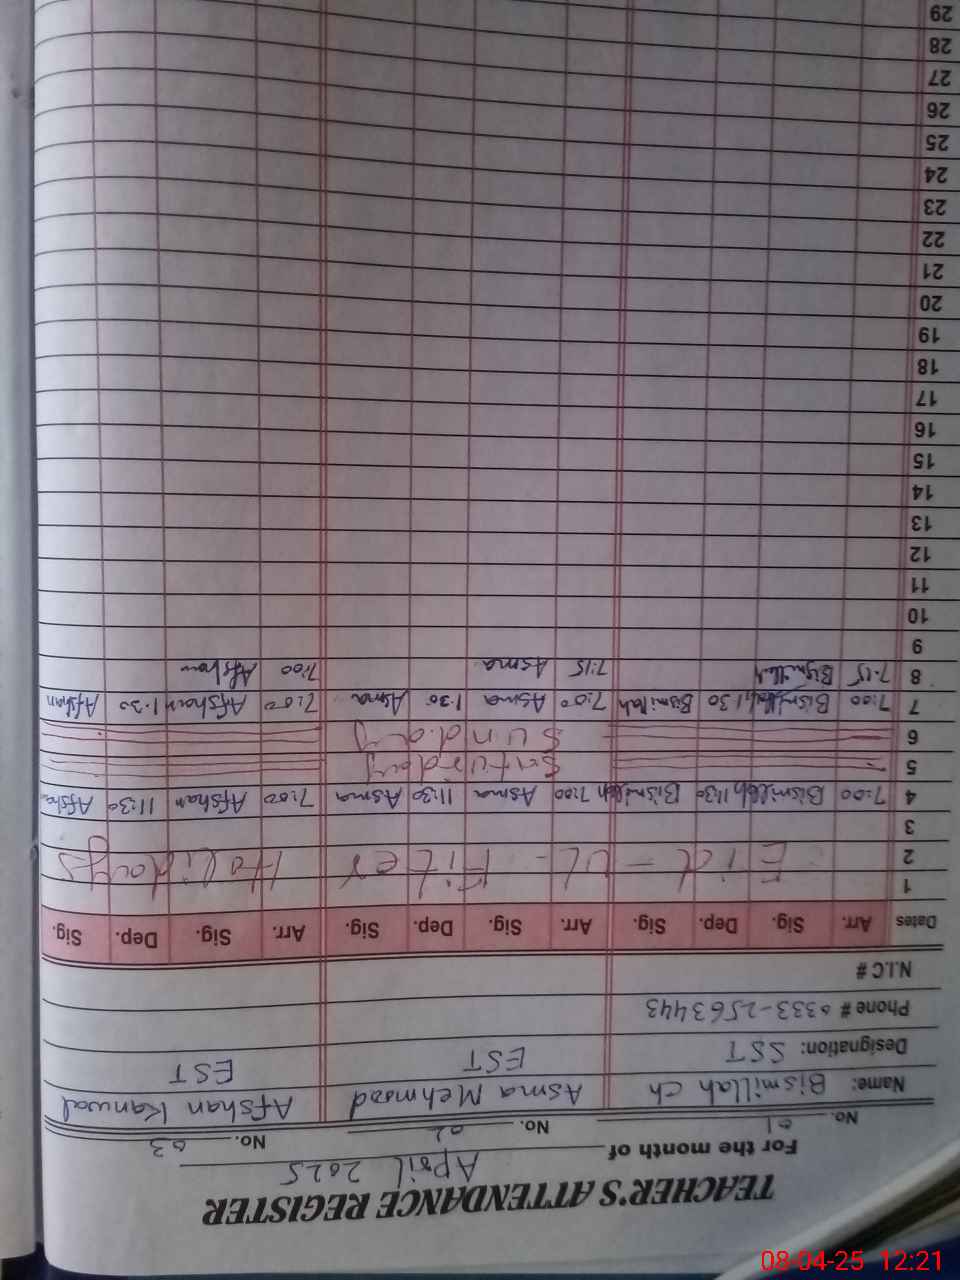 TEACHER'S ATTENDANCE REGISTER
For the month of April 2025
No. 01 No. 02 No. 03
Name: Bismillah Ch Asma Mehmood Afshan Kanwal
Designation: SST EST EST
Phone # 0333-2563443
N.I.C #
Dates Arr. Sig. Dep. Sig. Arr. Sig. Dep. Sig. Arr. Sig. Dep. Sig.
1
2 Eid - UL - Fiter Holidays
3
4 7:00 Bismillah 11:30 Bismillah 7:00 Asma 11:30 Asma 7:00 Afshan 11:30 Afshan
5 Saturday
6 Sunday
7 7:00 Bismillah 1:30 Bismillah 7:00 Asma 1:30 Asma 7:00 Afshan 1:30 Afshan
8 7:15 Bismillah 7:15 Asma 7:00 Afshan
9
10
11
12
13
14
15
16
17
18
19
20
21
22
23
24
25
26
27
28
29
08-04-25 12:21